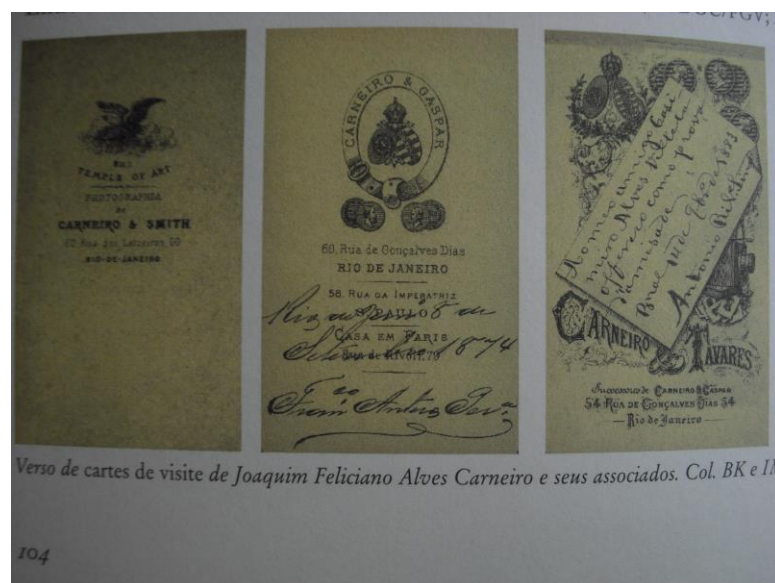 TEMPLE OF ART
PHOTOGRAPHIA
de
CARNEIRO & SMITH
RIO-DE-JANEIRO
CARNEIRO & GASPAR
60, Rua de Gonçalves Dias
RIO DE JANEIRO
58, RUA DA IMPERATRIZ
S. PAULO
CASA EM PARIS
8 de
1874
Ao meu amigo Casi
miro Alves Villela
offereço como prova
d'amisade
de 1883
Antonio
CARNEIRO & TAVARES
Successores de CARNEIRO & GASPAR
54 RUA DE GONÇALVES DIAS 54
Rio de Janeiro
Verso de cartes de visite de Joaquim Feliciano Alves Carneiro e seus associados. Col. BK e
104